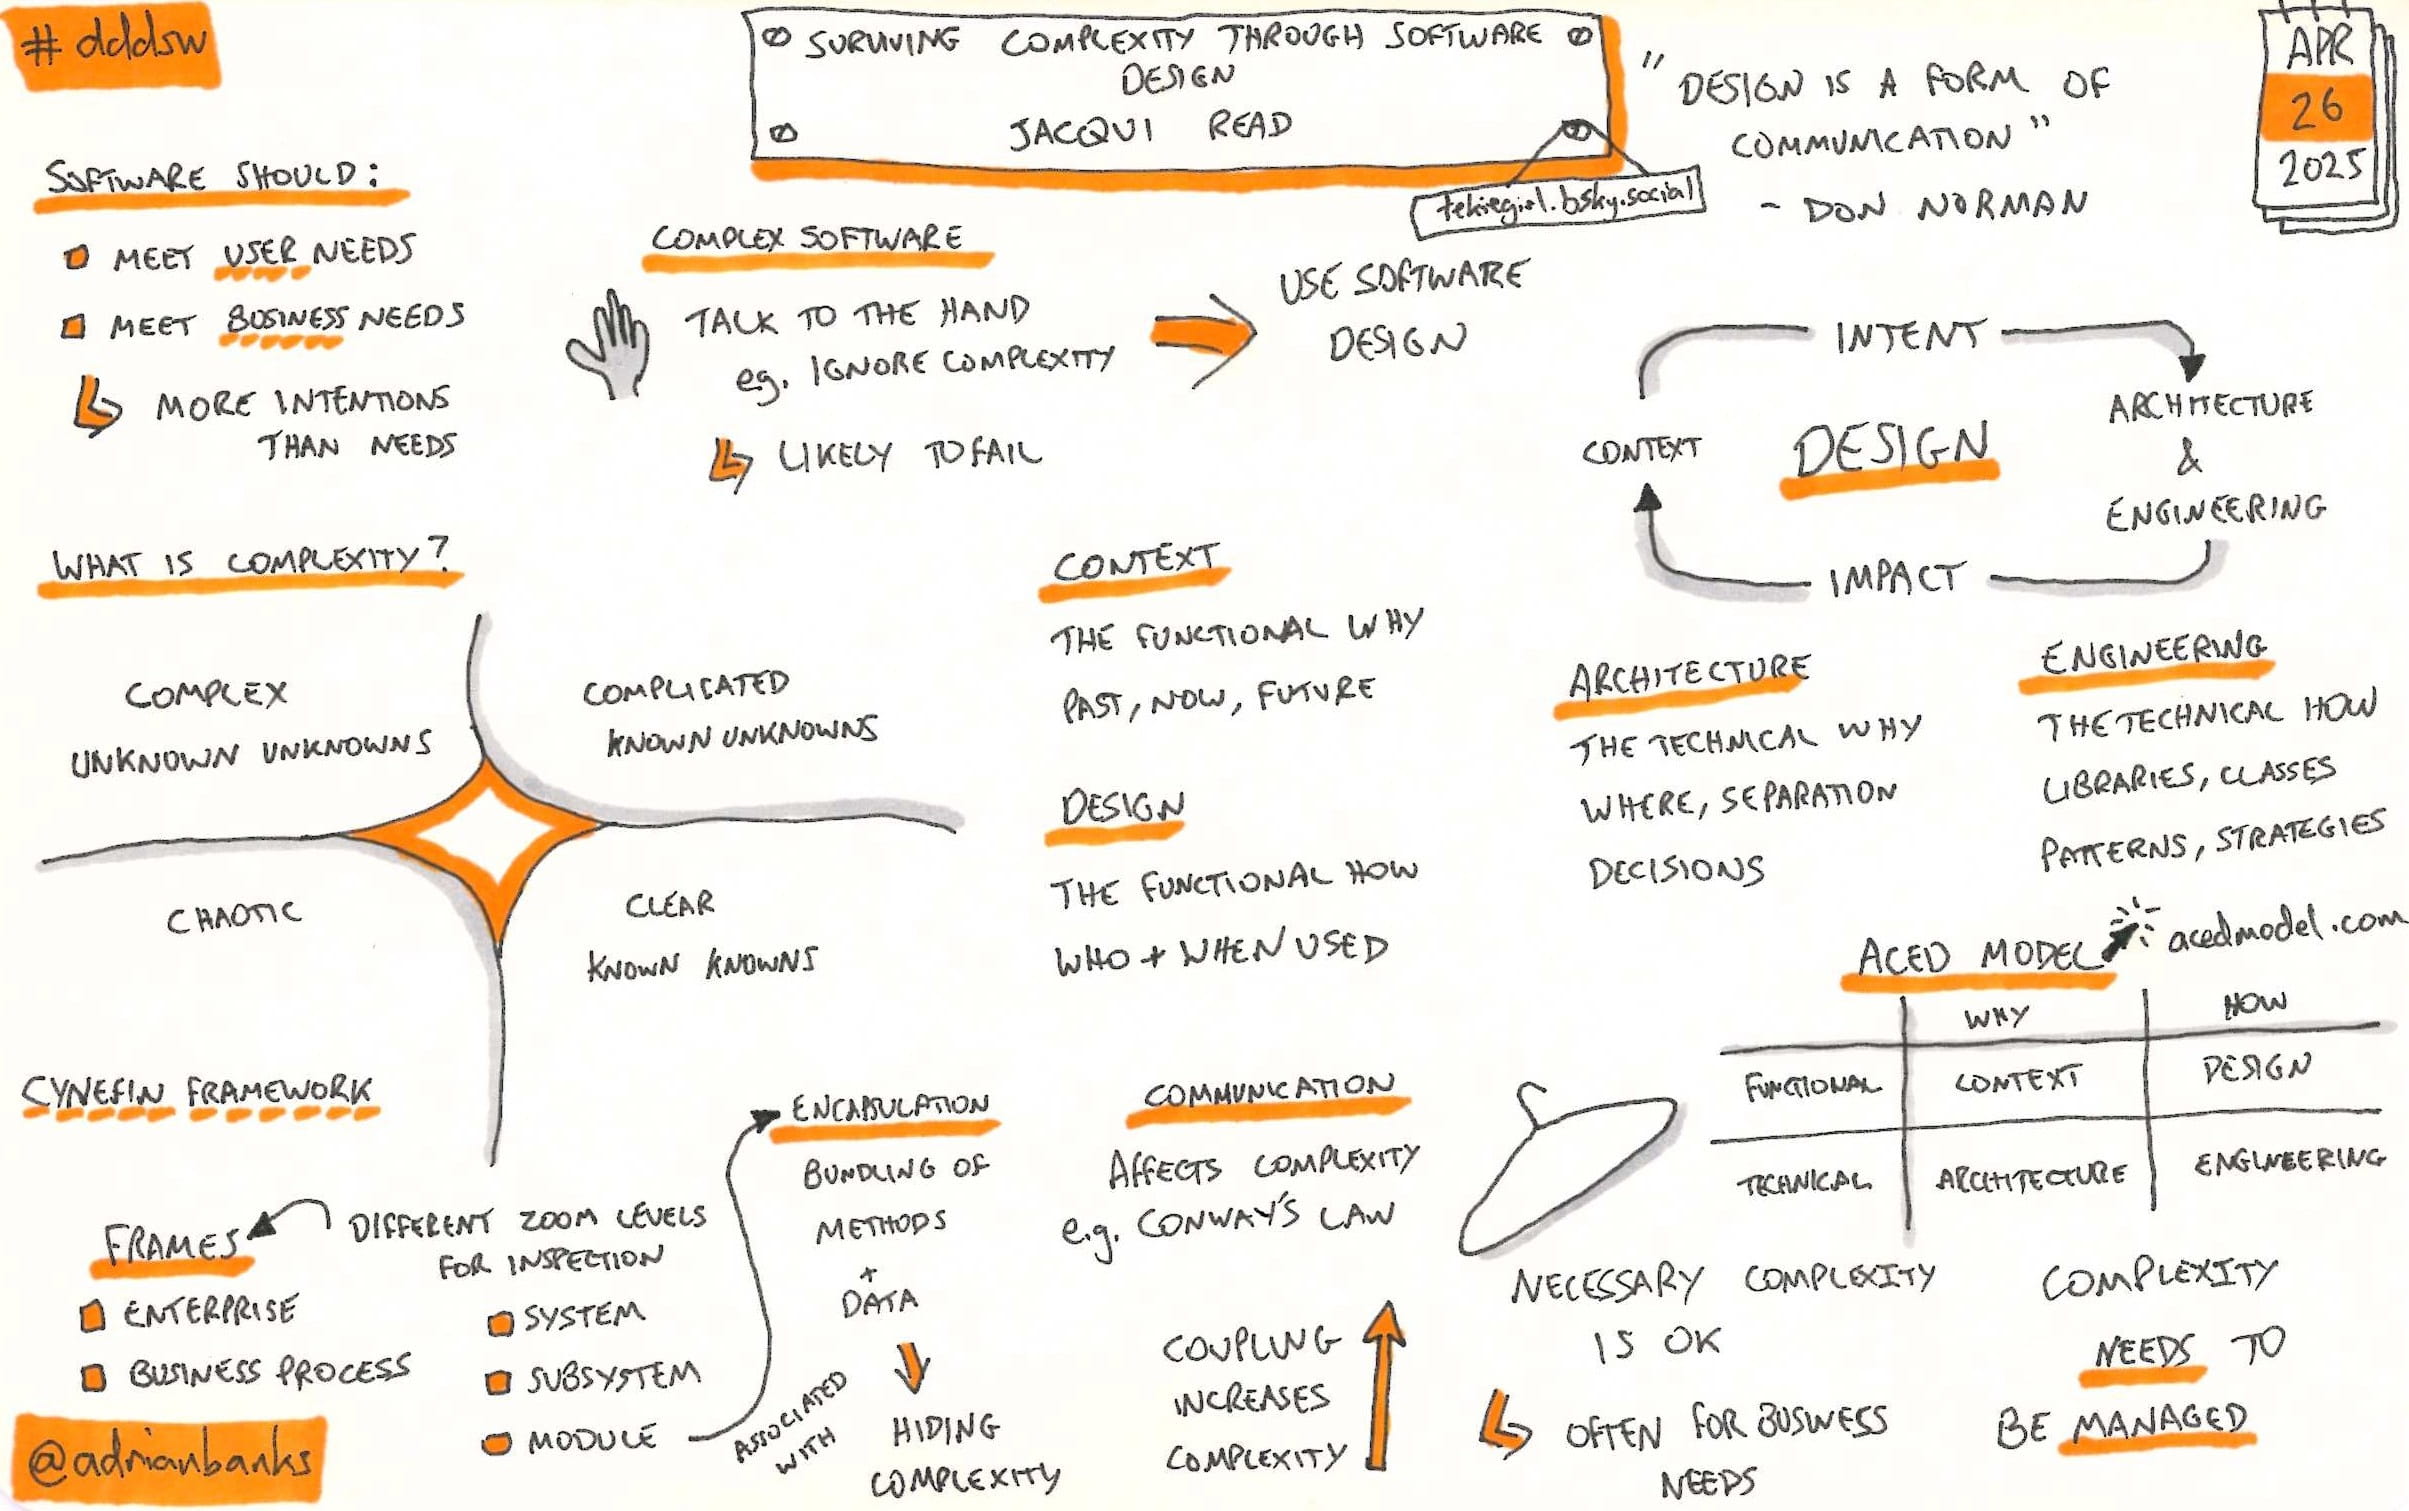 #dddsw
SURVIVING COMPLEXITY THROUGH SOFTWARE
DESIGN
JACQUI READ
tekiegirl.bsky.social
"DESIGN IS A FORM OF
COMMUNICATION"
- DON NORMAN
APR
26
2025
SOFTWARE SHOULD:
MEET USER NEEDS
MEET BUSINESS NEEDS
MORE INTENTIONS
THAN NEEDS
COMPLEX SOFTWARE
TALK TO THE HAND
eg. IGNORE COMPLEXITY
LIKELY TO FAIL
USE SOFTWARE
DESIGN
INTENT
ARCHITECTURE
&
ENGINEERING
CONTEXT
DESIGN
IMPACT
WHAT IS COMPLEXITY?
COMPLEX
UNKNOWN UNKNOWNS
COMPLICATED
KNOWN UNKNOWNS
CHAOTIC
CLEAR
KNOWN KNOWNS
CYNEFIN FRAMEWORK
CONTEXT
THE FUNCTIONAL WHY
PAST, NOW, FUTURE
DESIGN
THE FUNCTIONAL HOW
WHO + WHEN USED
ARCHITECTURE
THE TECHNICAL WHY
WHERE, SEPARATION
DECISIONS
ENGINEERING
THE TECHNICAL HOW
LIBRARIES, CLASSES
PATTERNS, STRATEGIES
ACED MODEL
acedmodel.com
WHY HOW
FUNCTIONAL CONTEXT DESIGN
TECHNICAL ARCHITECTURE ENGINEERING
FRAMES
DIFFERENT ZOOM LEVELS
FOR INSPECTION
ENTERPRISE
BUSINESS PROCESS
SYSTEM
SUBSYSTEM
MODULE
ASSOCIATED
WITH
ENCAPSULATION
BUNDLING OF
METHODS
+
DATA
HIDING
COMPLEXITY
COMMUNICATION
AFFECTS COMPLEXITY
e.g. CONWAY'S LAW
COUPLING
INCREASES
COMPLEXITY
NECESSARY COMPLEXITY
IS OK
OFTEN FOR BUSINESS
NEEDS
COMPLEXITY
NEEDS TO
BE MANAGED
@adrianbanks